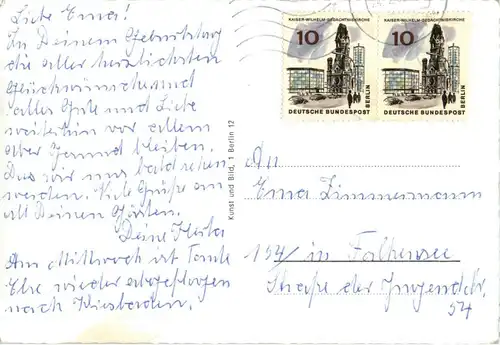 Liebe Erna!
Zu Deinem Geburtstag
die aller herzlichsten
Glückwünsche und
alles Gute und Liebe
weiterhin vor allem
aber Gesund bleiben.
Das wir uns bald sehen
werden. Viele Grüße an
all Deinen Gästen.
Deine Herta
Am Mittwoch ist Tante
Else wieder abgeflogen
nach Wiesbaden.
Kunst und Bild, 1 Berlin 12
KAISER-WILHELM-GEDÄCHTNISKIRCHE
10
DEUTSCHE BUNDESPOST
BERLIN
KAISER-WILHELM-GEDÄCHTNISKIRCHE
10
DEUTSCHE BUNDESPOST
BERLIN
An
Erna Zimmermann
154/ in Falkensee
Straße der Jugend
54